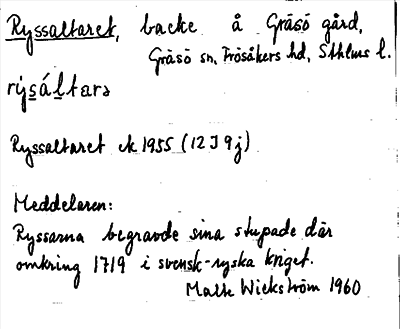 Ryssaltaret, backe å Gräsö gård,
Gräsö sn, Frösåkers hd, Sthlms l.
rýsáltarə
Ryssaltaret ek 1955 (12J9j)
Meddelaren:
Ryssarna begravde sina stupade där
omkring 1719 i svensk-ryska kriget.
Wickström 1960